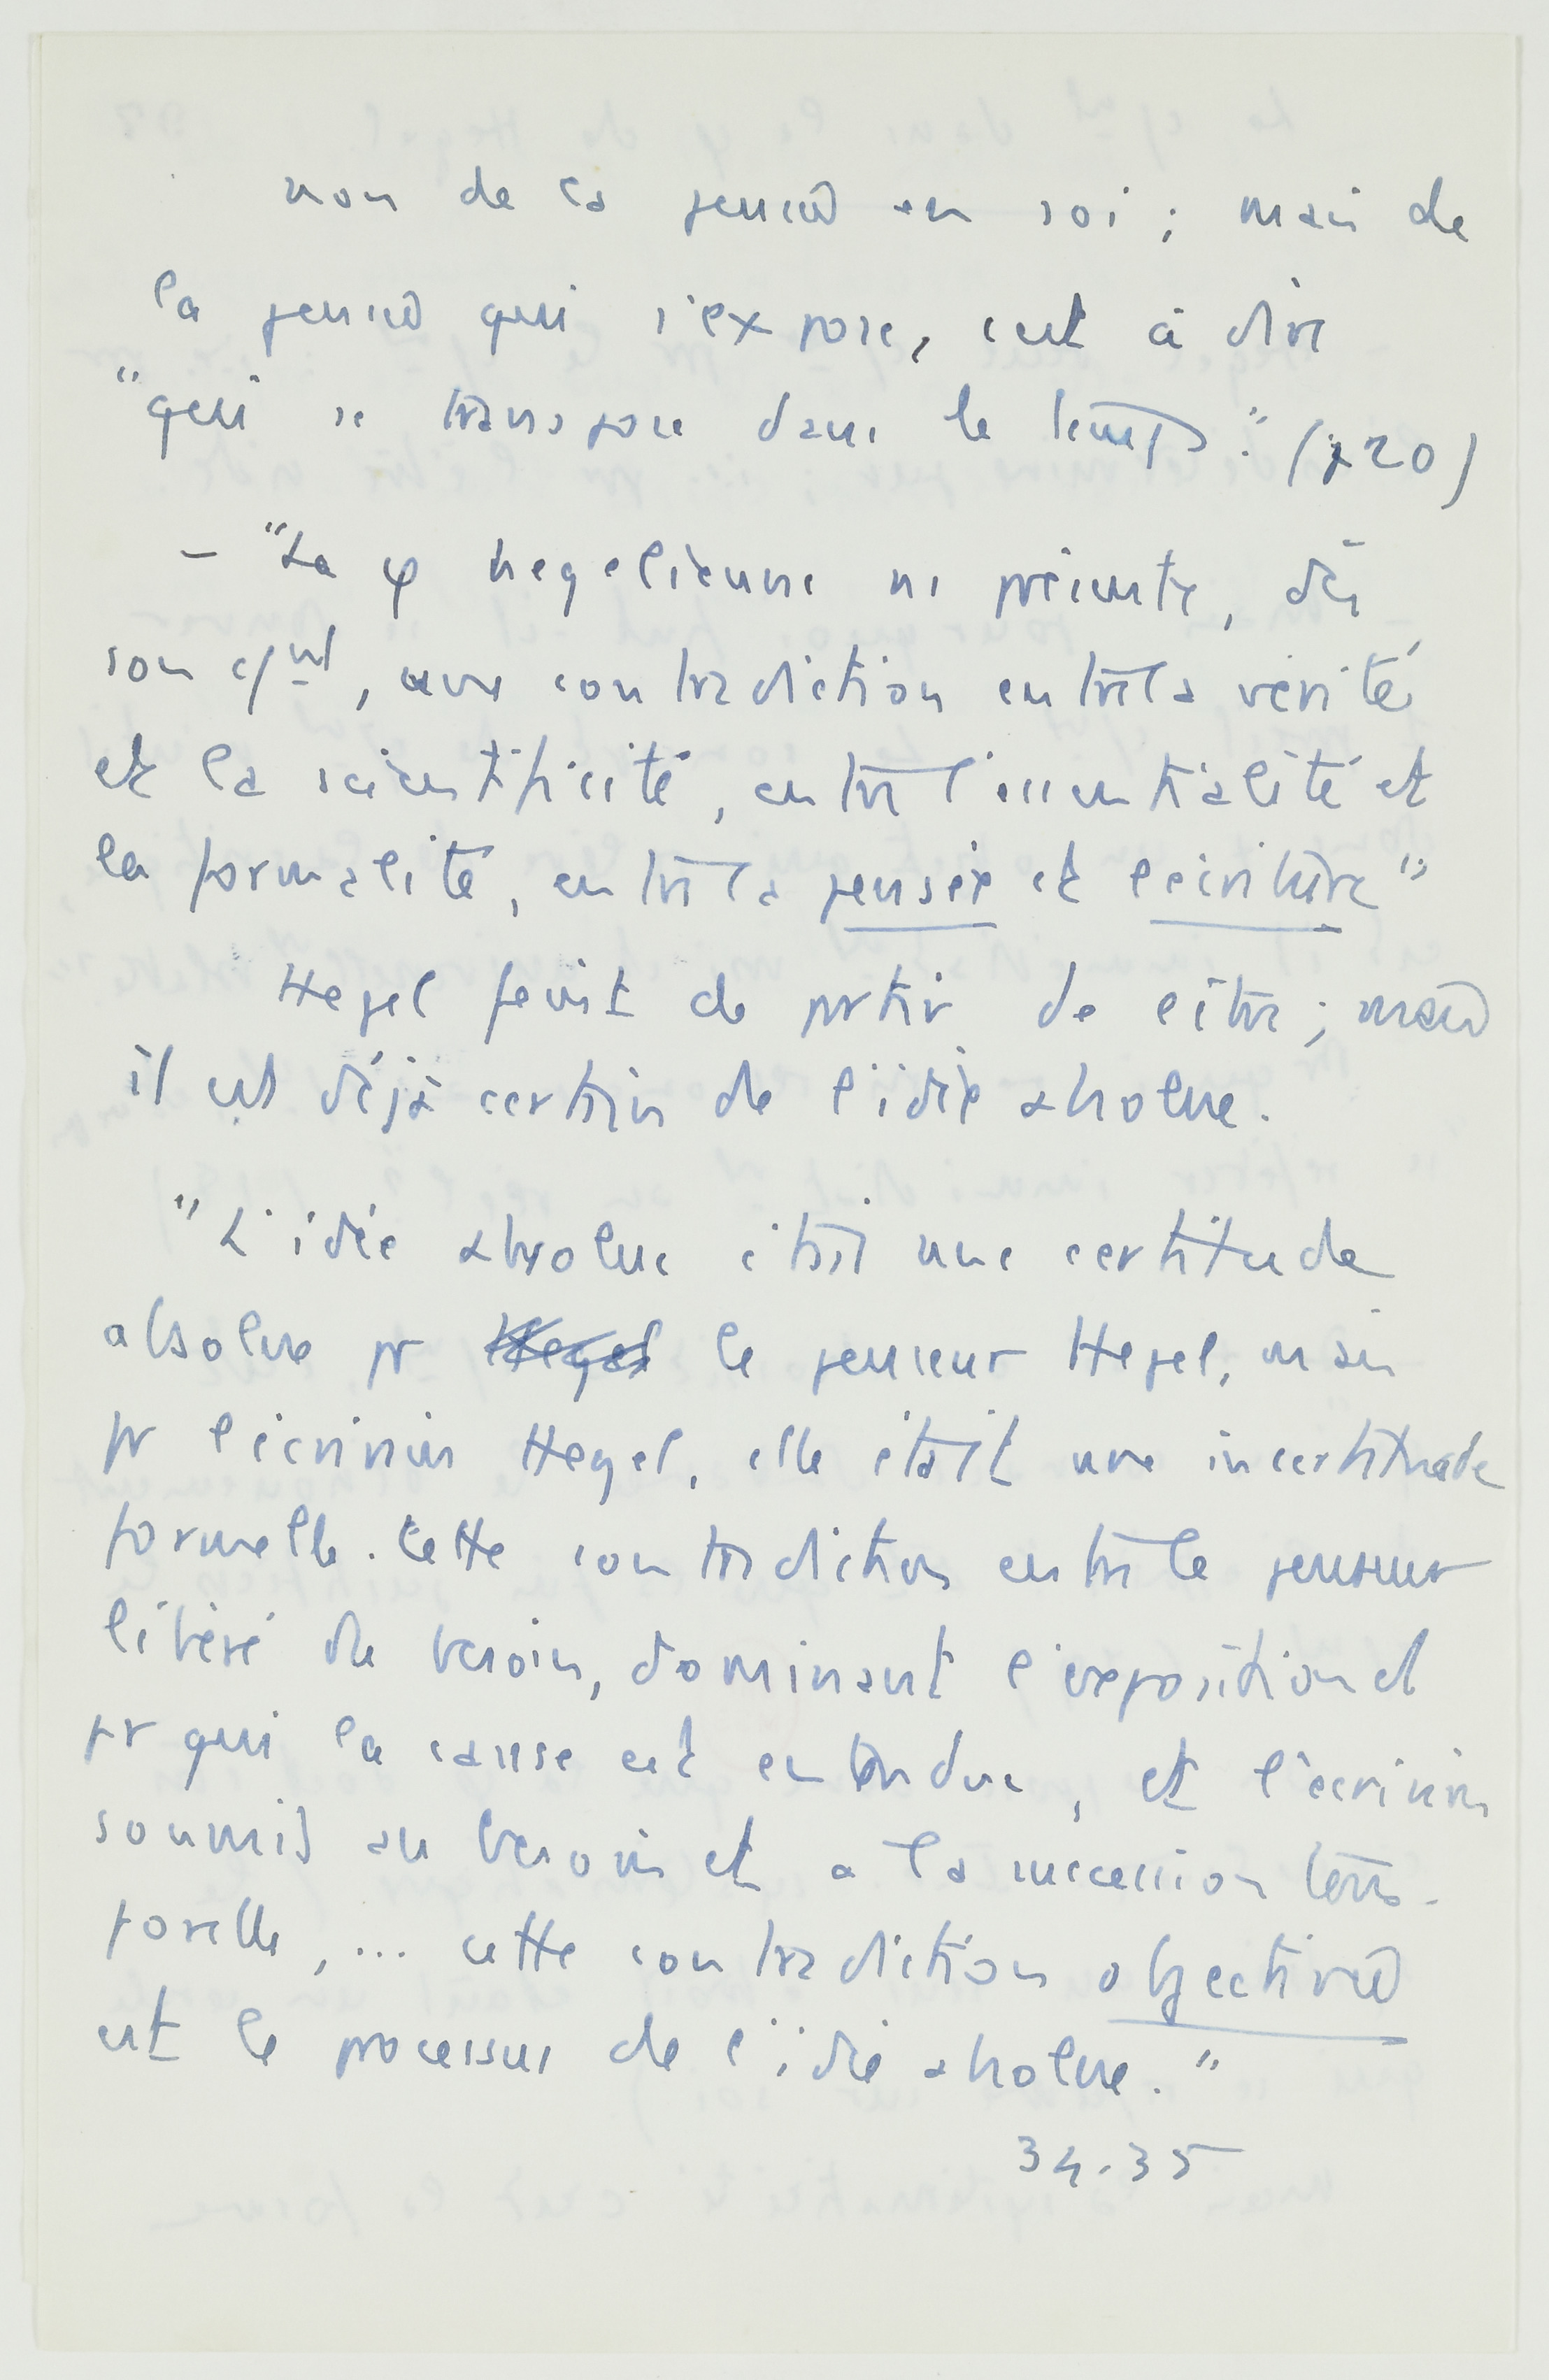 non de la pensée en soi ; mais de
la pensée qui s'expose, c'est à dire
"qui se transpose dans le temps." (p 20)
– "La φ hegelienne ne présente, dès
son cᵐᵗ, une contradiction entre la vérité
et la scientificité, entre l'essentialité et
la formalité, entre la pensée et l'écriture"
Hegel feint de partir de l'être ; mais
il est déjà certain de l'idée absolue.
"L'idée absolue était une certitude
absolue pr Hegel le penseur Hegel, mais
pr l'écrivain Hegel, elle était une incertitude
formelle. Cette contradiction entre le penseur
libéré du besoin, dominant l'exposition et
pr qui la cause est entendue, et l'écrivain
soumis au besoin et a la succession tem-
porelle, ... cette contradiction objectivée
est le processus de l'idée absolue."
34.35